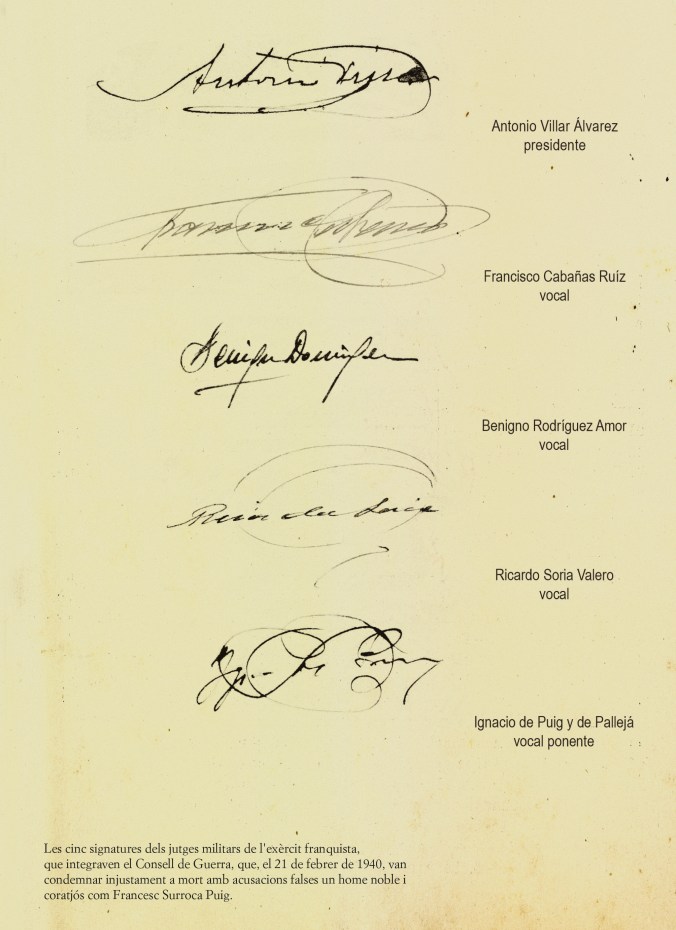 Antonio Villar
Antonio Villar Álvarez
presidente
Francisco Cabañas
Francisco Cabañas Ruíz
vocal
Benigno
Benigno Rodríguez Amor
vocal
Ricardo Soria
Ricardo Soria Valero
vocal
Ignacio de Puig y de Pallejá
vocal ponente
Les cinc signatures dels jutges militars de l'exèrcit franquista,
que integraven el Consell de Guerra, que, el 21 de febrer de 1940, van
condemnar injustament a mort amb acusacions falses un home noble i
coratjós com Francesc Surroca Puig.